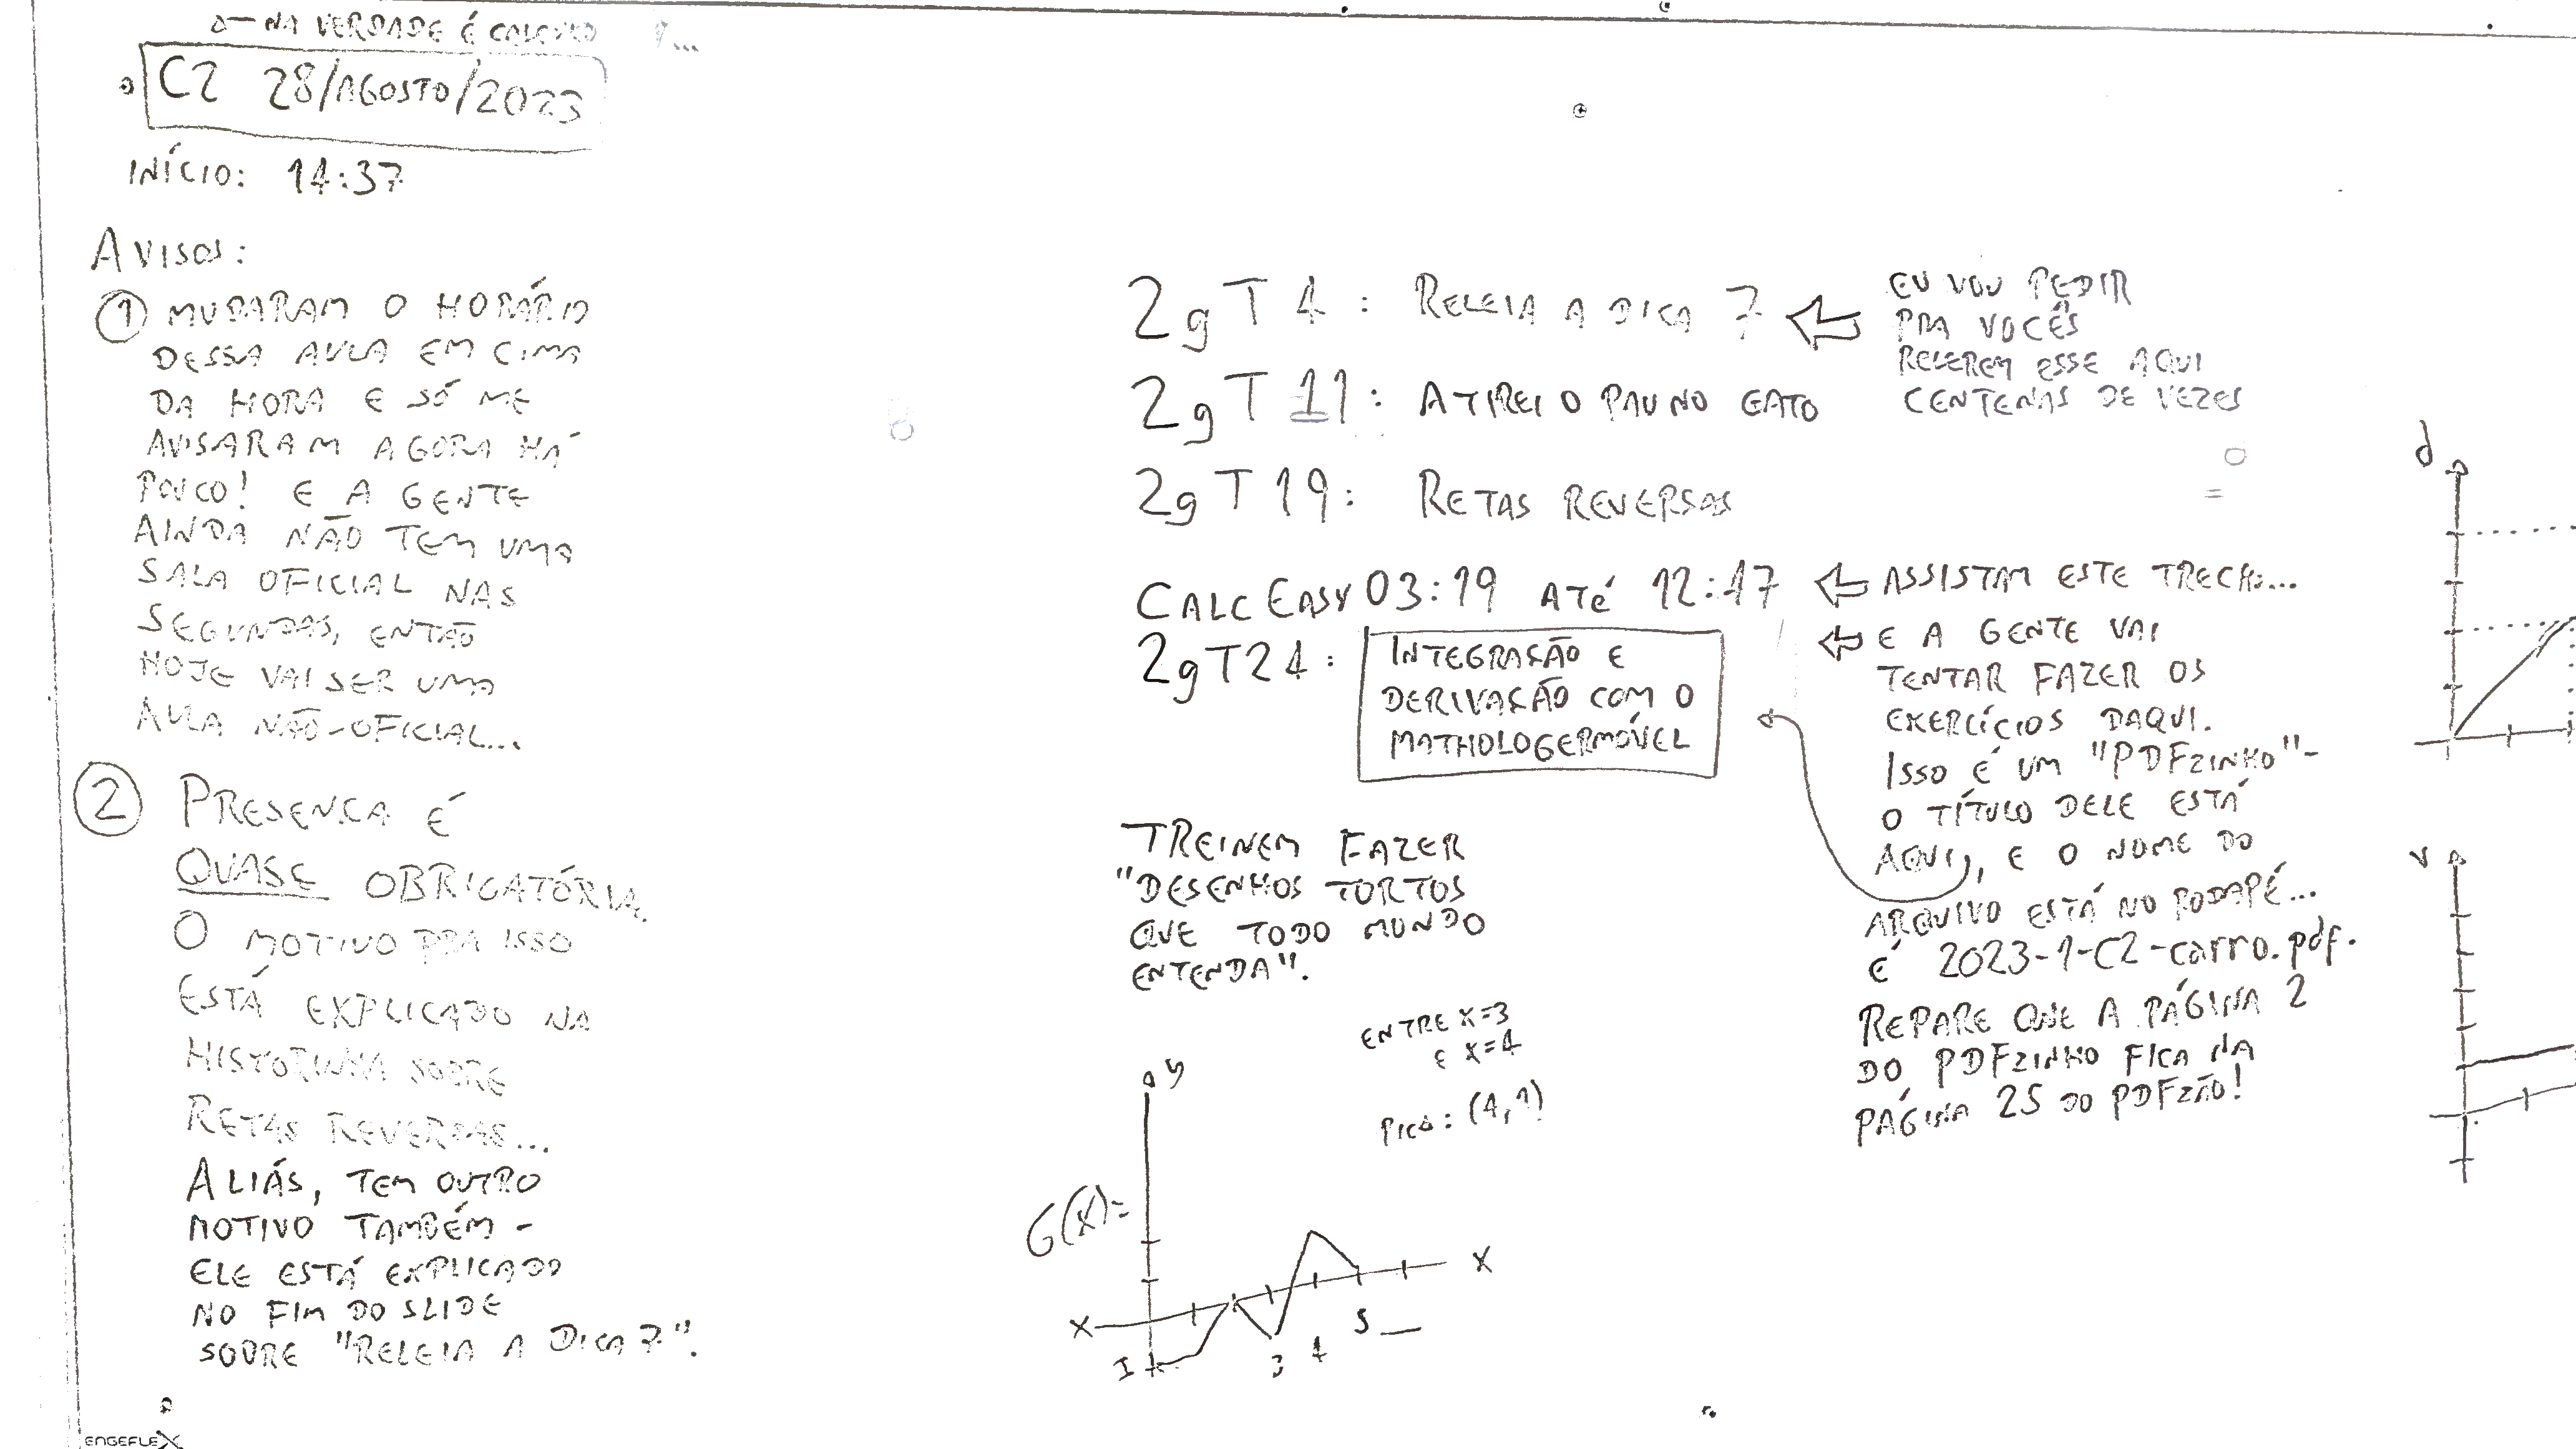 NA VERDADE É CÁLCULO
C2 28/AGOSTO/2023
INÍCIO: 14:37
AVISOS:
① MUDARAM O HORÁRIO
DESSA AULA EM CIMA
DA HORA E SÓ ME
AVISARAM AGORA HÁ
POUCO! E A GENTE
AINDA NÃO TEM UMA
SALA OFICIAL NAS
SEGUNDAS, ENTÃO
HOJE VAI SER UMA
AULA NÃO-OFICIAL...
② PRESENÇA É
QUASE OBRIGATÓRIA.
O MOTIVO PRA ISSO
ESTÁ EXPLICADO NA
HISTORINHA SOBRE
RETAS REVERSAS...
ALIÁS, TEM OUTRO
MOTIVO TAMBÉM -
ELE ESTÁ EXPLICADO
NO FIM DO SLIDE
SOBRE "RELEIA A DICA 7".
ENGEFLEX
2gT4: RELEIA A DICA 7
2gT11: ATIREI O PAU NO GATO
2gT19: RETAS REVERSAS
CALCEASY 03:19 ATÉ 12:47
2gT24:
INTEGRAÇÃO E
DERIVAÇÃO COM O
MATHOLOGERMÓVEL
TREINEM FAZER
"DESENHOS TORTOS
QUE TODO MUNDO
ENTENDA".
ENTRE X=3
E X=4
PICO: (4,1)
y
G(x)=
x
x
3
4
5
EU VOU PEDIR
PRA VOCÊS
RELEREM ESSE AQUI
CENTENAS DE VEZES
ASSISTAM ESTE TRECHO...
E A GENTE VAI
TENTAR FAZER OS
EXERCÍCIOS DAQUI.
ISSO É UM "PDFZINHO"-
O TÍTULO DELE ESTÁ
AQUI, E O NOME DO
ARQUIVO ESTÁ NO RODAPÉ...
É 2023-1-C2-carro.pdf.
REPARE QUE A PÁGINA 2
DO PDFZINHO FICA NA
PÁGINA 25 DO PDFZÃO!
d
v